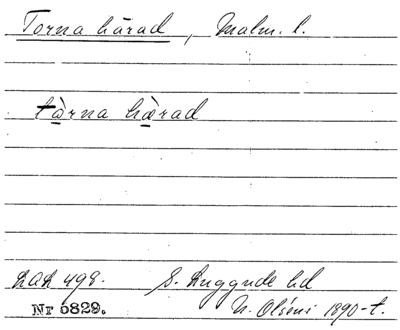 Torna härad, Malm. l.
tàrna hærad
LAL 498. S. Luggude hd
Nr 5829. N. Olséni 1890-t.